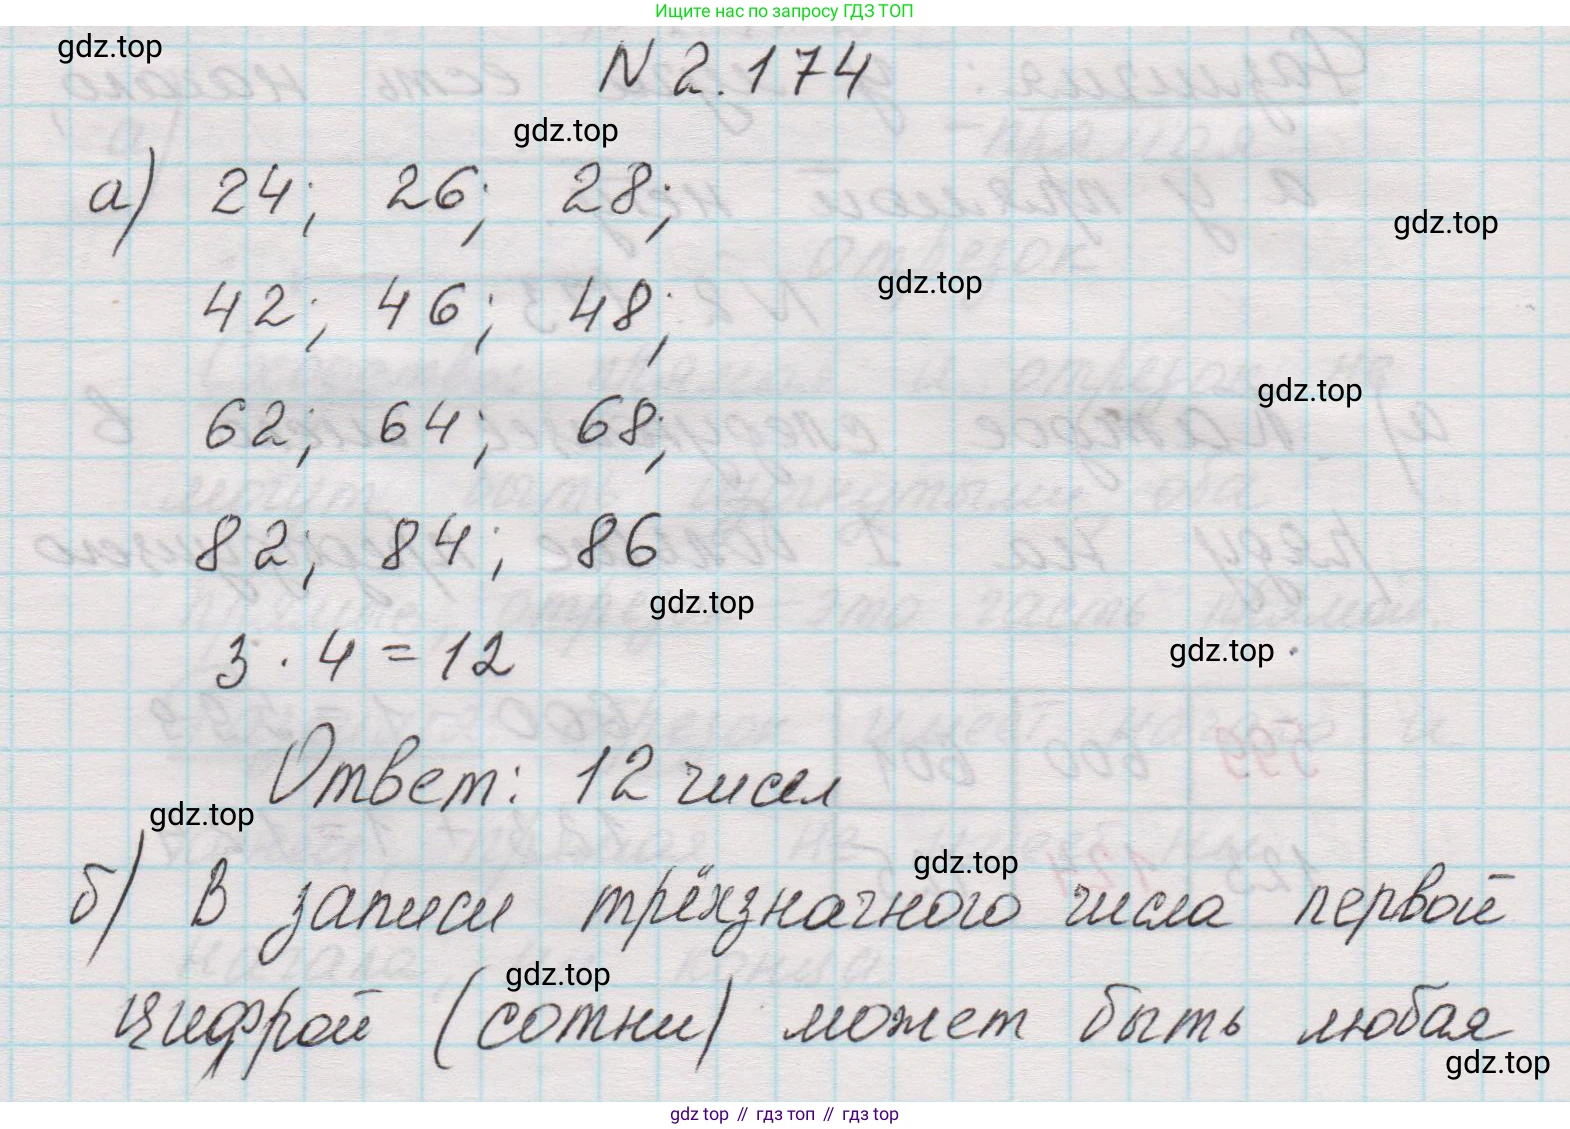 Ищите нас по запросу ГДЗ ТОП
gdz.top
N 2.174
gdz.top
а) 24; 26; 28;
gdz.top
gdz.top
42; 46; 48;
gdz.top
62; 64; 68;
82; 84; 86
gdz.top
3 · 4 = 12
gdz.top
Ответ: 12 чисел
gdz.top
gdz.top
б) В записи трёхзначного числа первой
gdz.top
цифрой (сотни) может быть любая
gdz.top
gdz top // гдз топ // гдз top